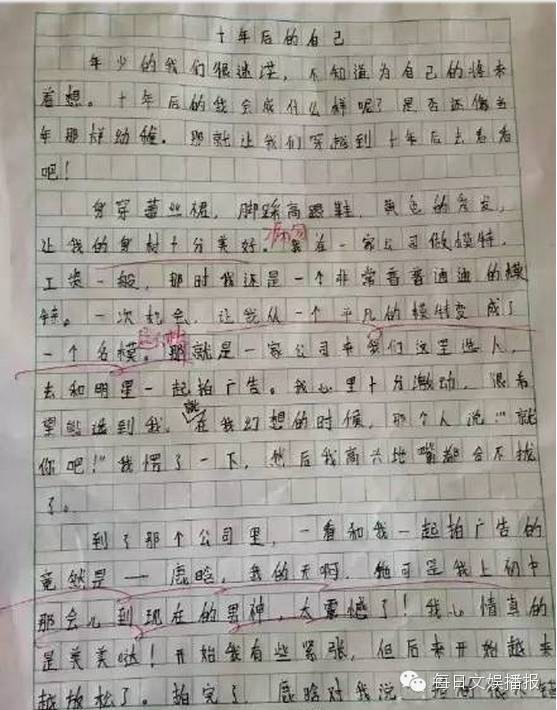 十年后的自己
年少的我们很迷茫，不知道为自己的将来
着想。十年后的我会成什么样呢？是否还像当
年那样幼稚。那就让我们穿越到十年后去看看
吧！
身穿蕾丝裙，脚踩高跟鞋，黄色的卷发，
让我的身材十分美好。病句 我在一家公司做模特，
工资一般，那时我还是一个非常普普通通的模
特。一次机会，让我从一个平凡的模特变成了
一个名模。那就是一家公司来我们这里选人，
去和明星一起拍广告。我心里十分激动，很希
望能选到我。就在我幻想的时候，那个人说："就
你吧！"我愣了一下，然后我高兴地嘴都合不拢
了。
到了那个公司里，一看和我一起拍广告的
竟然是——鹿晗，我的天啊，他可是我上初中
那会儿到现在的男神，太震憾了！我心情真的
是美美哒！开始我有些紧张，但后来开始越来
越放松了。拍完了，鹿晗对我说
每日文娱播报